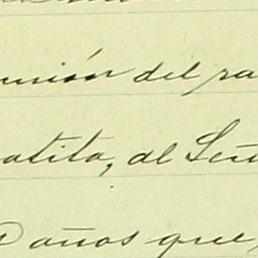 unión del ra
atito, al Señ
años que